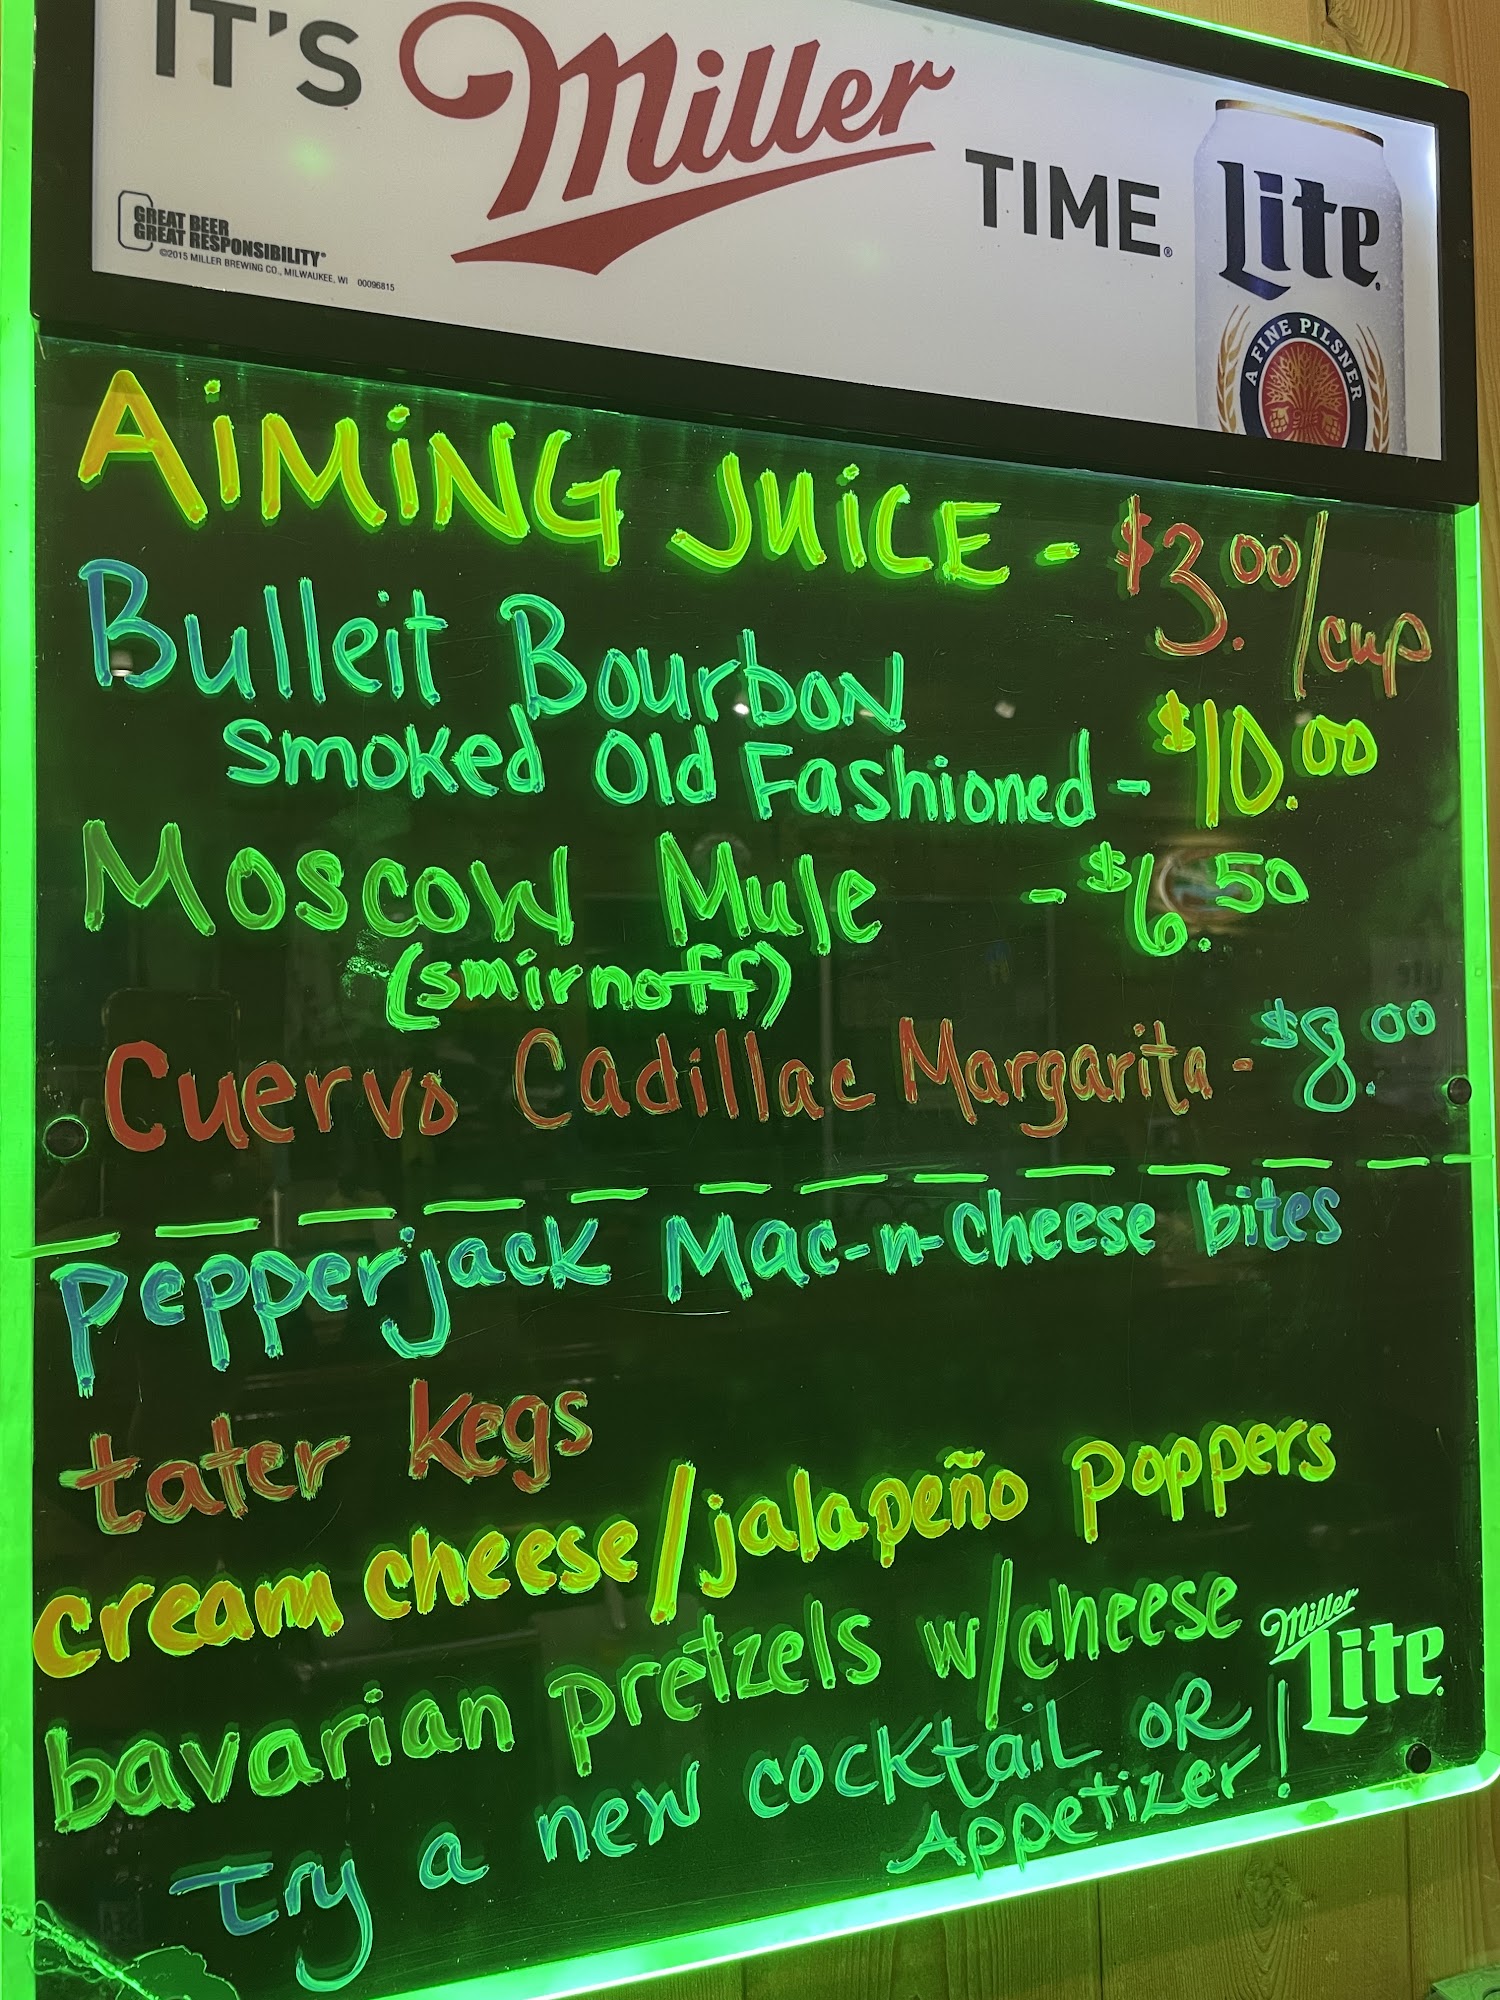 IT'S Miller TIME®
Lite
A FINE PILSNER
GREAT BEER
GREAT RESPONSIBILITY®
©2015 MILLER BREWING CO., MILWAUKEE, WI 00096815
AiMiNG JUiCE - $3.00/cup
Bulleit Bourbon
Smoked Old Fashioned - $10.00
Moscow Mule - $6.50
(smirnoff)
Cuervo Cadillac Margarita - $8.00
Pepperjack Mac-n-cheese bites
tater kegs
cream cheese/jalapeño poppers
bavarian pretzels w/cheese
Try a new cocktail OR
Appetizer!
Miller
Lite